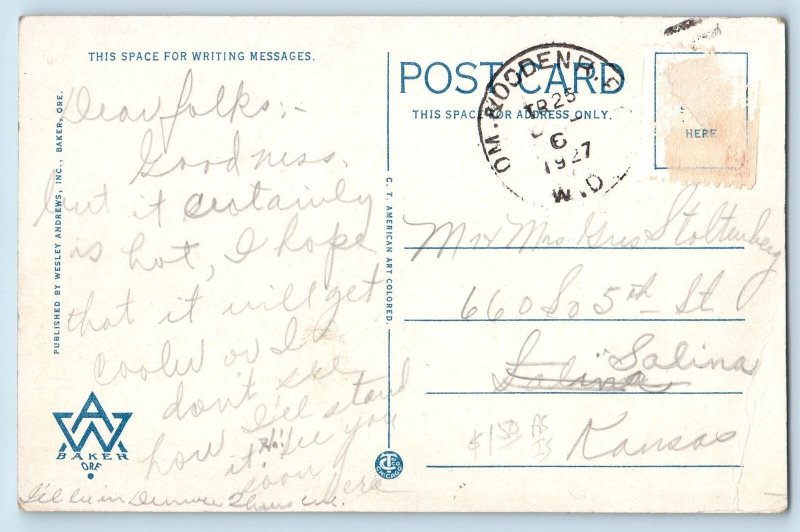 THIS SPACE FOR WRITING MESSAGES.
Dear folks:-
Goodness,
but it certainly
is hot, I hope
that it will get
cooler or I
don't see
how I'll stand
it. See you
soon
I'll be in Denver Thurs eve.
PUBLISHED BY WESLEY ANDREWS, INC., BAKER, ORE.
BAKER
ORE
C. T. AMERICAN ART COLORED.
POST CARD
THIS SPACE FOR ADDRESS ONLY.
TR 25
6
1927
HERE
Mr & Mrs Gus Stoltenberg
660 So 5th St
Salina Salina
Kansas
$1.50 AS IS